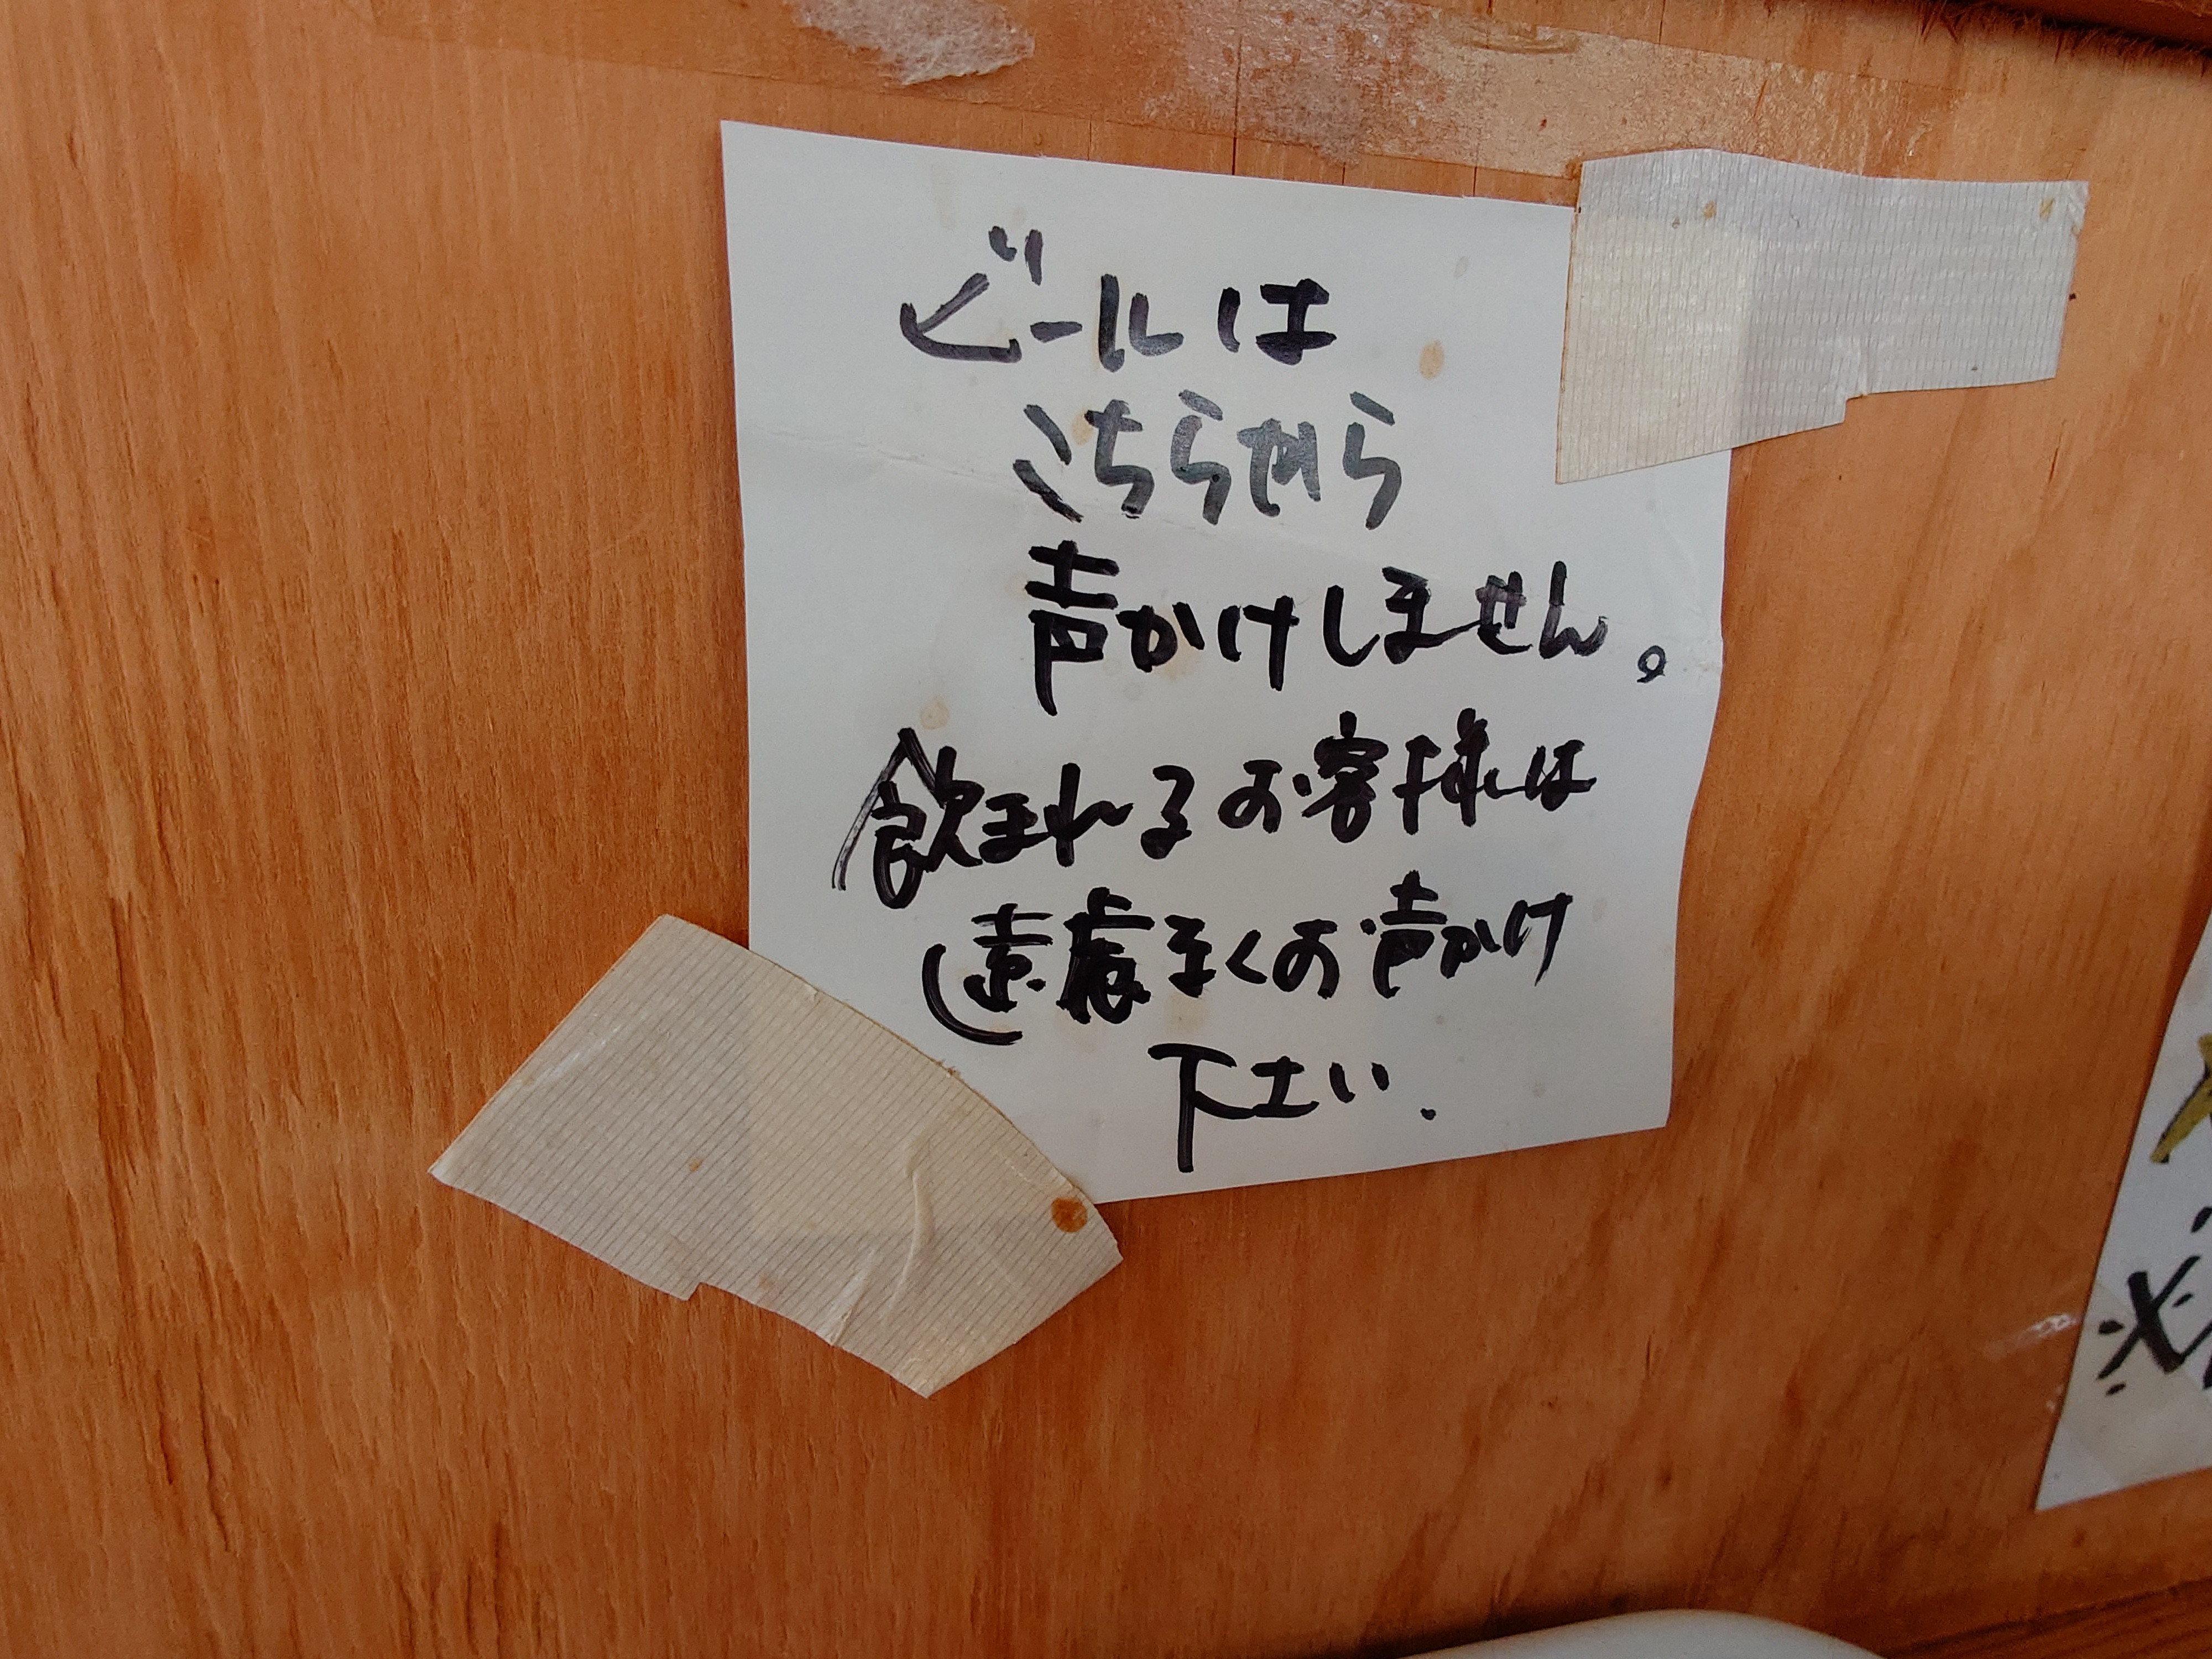 ビールは
こちらから
声かけしません。
飲まれるお客様は
遠慮なくお声かけ
下さい.